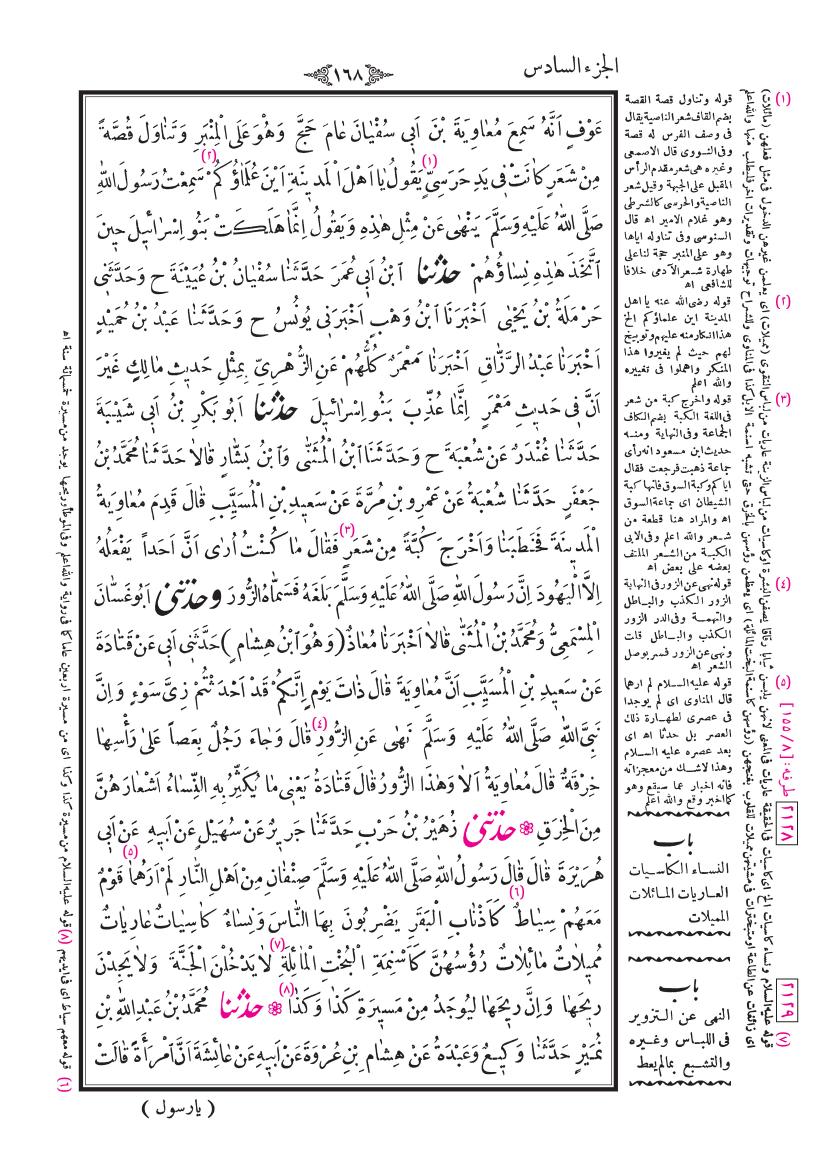 الجزء السادس
١٦٨
عَوْفٍ اَنَّهُ سَمِعَ مُعَاوِيَةَ بْنَ اَبِي سُفْيَانَ عَامَ حَجَّ وَهُوَ عَلَى الْمِنْبَرِ وَتَنَاوَلَ قُصَّةً
مِنْ شَعَرٍ كَانَتْ فِي يَدِ حَرَسِيٍّ (١) يَقُولُ يَا اَهْلَ الْمَدِينَةِ (٢) اَيْنَ عُلَمَاؤُكُمْ سَمِعْتُ رَسُولَ اللهِ
صَلَّى اللهُ عَلَيْهِ وَسَلَّمَ يَنْهَى عَنْ مِثْلِ هٰذِهِ وَيَقُولُ اِنَّمَا هَلَكَتْ بَنُو اِسْرَائِيلَ حِينَ
اتَّخَذَ هٰذِهِ نِسَاؤُهُمْ حدثنا ابْنُ اَبِي عُمَرَ حَدَّثَنَا سُفْيَانُ بْنُ عُيَيْنَةَ ح وَحَدَّثَنِي
حَرْمَلَةُ بْنُ يَحْيٰى اَخْبَرَنَا ابْنُ وَهْبٍ اَخْبَرَنِي يُونُسُ ح وَحَدَّثَنَا عَبْدُ بْنُ حُمَيْدٍ
اَخْبَرَنَا عَبْدُ الرَّزَّاقِ اَخْبَرَنَا مَعْمَرٌ كُلُّهُمْ عَنِ الزُّهْرِيِّ بِمِثْلِ حَدِيثِ مَالِكٍ غَيْرَ
اَنَّ فِي حَدِيثِ مَعْمَرٍ اِنَّمَا عُذِّبَ بَنُو اِسْرَائِيلَ حدثنا اَبُو بَكْرِ بْنُ اَبِي شَيْبَةَ
حَدَّثَنَا غُنْدَرٌ عَنْ شُعْبَةَ ح وَحَدَّثَنَا ابْنُ الْمُثَنّٰى وَابْنُ بَشَّارٍ قَالَا حَدَّثَنَا مُحَمَّدُ بْنُ
جَعْفَرٍ حَدَّثَنَا شُعْبَةُ عَنْ عَمْرِو بْنِ مُرَّةَ عَنْ سَعِيدِ بْنِ الْمُسَيَّبِ قَالَ قَدِمَ مُعَاوِيَةُ
الْمَدِينَةَ فَخَطَبَنَا وَاَخْرَجَ كُبَّةً مِنْ شَعَرٍ (٣) فَقَالَ مَا كُنْتُ اُرٰى اَنَّ اَحَداً يَفْعَلُهُ
اِلَّا الْيَهُودَ اِنَّ رَسُولَ اللهِ صَلَّى اللهُ عَلَيْهِ وَسَلَّمَ بَلَغَهُ فَسَمَّاهُ الزُّورَ وحدثني اَبُو غَسَّانَ
الْمِسْمَعِيُّ وَمُحَمَّدُ بْنُ الْمُثَنّٰى قَالَا اَخْبَرَنَا مُعَاذٌ (وَهُوَ ابْنُ هِشَامٍ) حَدَّثَنِي اَبِي عَنْ قَتَادَةَ
عَنْ سَعِيدِ بْنِ الْمُسَيَّبِ اَنَّ مُعَاوِيَةَ قَالَ ذَاتَ يَوْمٍ اِنَّكُمْ قَدْ اَحْدَثْتُمْ زِيَّ سَوْءٍ وَاِنَّ
نَبِيَّ اللهِ صَلَّى اللهُ عَلَيْهِ وَسَلَّمَ نَهٰى عَنِ الزُّورِ (٤) قَالَ وَجَاءَ رَجُلٌ بِعَصاً عَلٰى رَأْسِهَا
خِرْقَةٌ قَالَ مُعَاوِيَةُ اَلَا وَهٰذَا الزُّورُ قَالَ قَتَادَةُ يَعْنِي مَا يُكَثِّرُ بِهِ النِّسَاءُ اَشْعَارَهُنَّ
مِنَ الْخِرَقِ ۞ حدثني زُهَيْرُ بْنُ حَرْبٍ حَدَّثَنَا جَرِيرٌ عَنْ سُهَيْلٍ عَنْ اَبِيهِ عَنْ اَبِي
هُرَيْرَةَ قَالَ قَالَ رَسُولُ اللهِ صَلَّى اللهُ عَلَيْهِ وَسَلَّمَ صِنْفَانِ مِنْ اَهْلِ النَّارِ لَمْ اَرَهُمَا (٥) قَوْمٌ
مَعَهُمْ سِيَاطٌ (٦) كَاَذْنَابِ الْبَقَرِ يَضْرِبُونَ بِهَا النَّاسَ وَنِسَاءٌ كَاسِيَاتٌ عَارِيَاتٌ
مُمِيلَاتٌ مَائِلَاتٌ رُؤُسُهُنَّ كَاَسْنِمَةِ الْبُخْتِ الْمَائِلَةِ (٧) لَا يَدْخُلْنَ الْجَنَّةَ وَلَا يَجِدْنَ
رِيحَهَا وَاِنَّ رِيحَهَا لَيُوجَدُ مِنْ مَسِيرَةِ كَذَا وَكَذَا (٨) ۞ حدثنا مُحَمَّدُ بْنُ عَبْدِ اللهِ بْنِ
نُمَيْرٍ حَدَّثَنَا وَكِيعٌ وَعَبْدَةُ عَنْ هِشَامِ بْنِ عُرْوَةَ عَنْ اَبِيهِ عَنْ عَائِشَةَ اَنَّ امْرَأَةً قَالَتْ
( يارسول )
(١) قوله وتناول قصة القصة
بضم القاف شعر الناصية يقال
فى وصف الفرس له قصة
وفى النووى قال الاصمعى
وغيره هى شعر مقدم الرأس
المقبل على الجبهة وقيل شعر
الناصية والحرسى كالشرطى
وهو غلام الامير اه قال
السنوسى وفى تناوله اياها
وهو على المنبر حجة لنا على
طهارة شعر الآدمى خلافا
للشافعى اه
(٢) قوله رضى الله عنه يا اهل
المدينة اين علماؤكم الخ
هذا انكار منه عليهم وتوبيخ
لهم حيث لم يغيروا هذا
المنكر واهملوا فى تغييره
والله اعلم
(٣) قوله واخرج كبة من شعر
فى اللغة الكبة بضم الكاف
الجماعة وفى النهاية ومنه
حديث ابن مسعود انه رأى
جماعة ذهبت فرجعت فقال
اياكم وكبة السوق فانها كبة
الشيطان اى جماعة السوق
اه والمراد هنا قطعة من
شعر والله اعلم وفى الابى
الكبة من الشعر الملتف
بعضه على بعض اه
(٤) قوله نهى عن الزور فى النهاية
الزور الكذب والباطل
والتهمة وفى الدر الزور
الكذب والباطل قلت
ونهى عن الزور فسر بوصل
الشعر اه
(٥) قوله عليه السلام لم ارهما
قال المناوى اى لم يوجدا
فى عصرى لطهارة ذلك
العصر بل حدثا اه اى
بعد عصره عليه السلام
وهذا لاشك من معجزاته
فانه اخبار عما سيقع وهو
كما اخبر وقع والله اعلم
باب
النساء الكاسيات
العاريات المائلات
المميلات
باب
النهى عن التزوير
فى اللباس وغيره
والتشبع بمالم يعط
طرفه: [٨/١٥٥]
٢١٢٨
٢١٢٩
(٦) قوله معهم سياط اى فى ايديهم (٨) قوله عليه السلام من مسيرة كذا وكذا اى من مسيرة اربعين عاما كما فى رواية والله اعلم وفى الموطأ وريحها يوجد من مسيرة خمسمائة سنة اه